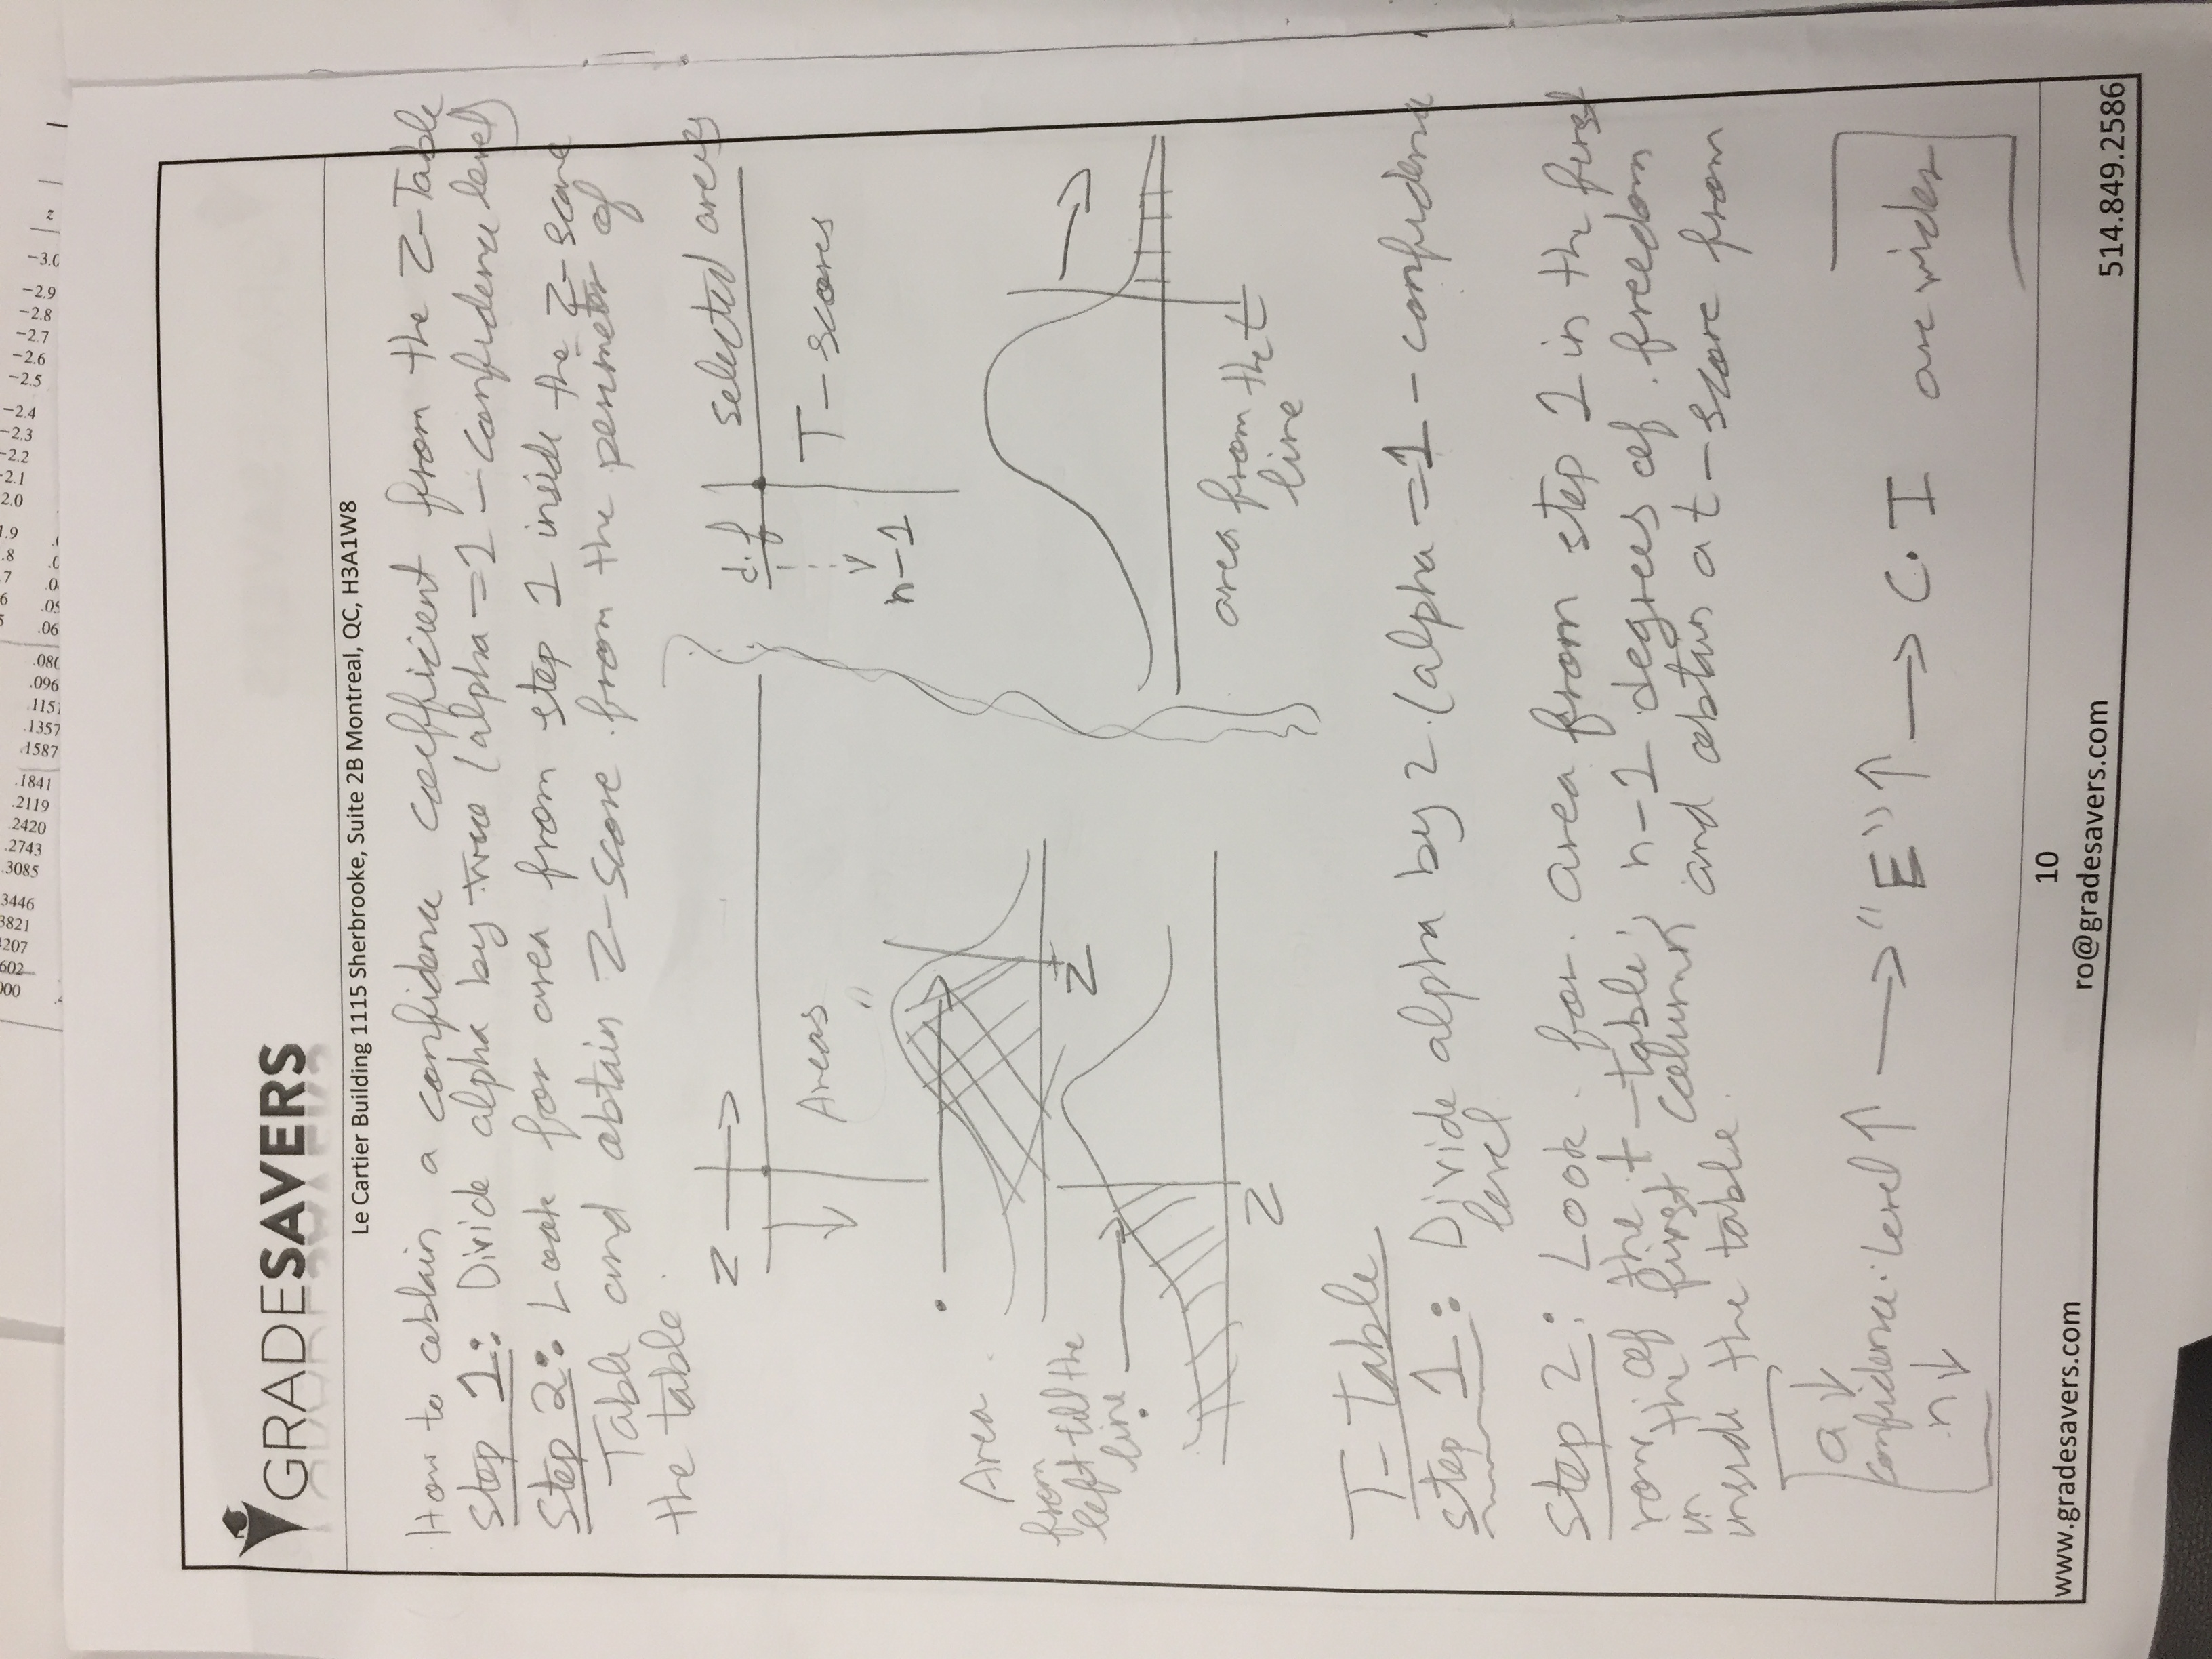 GRADESAVERS
Le Cartier Building 1115 Sherbrooke, Suite 2B Montreal, QC, H3A1W8
How to obtain a confidence coefficient from the Z-Table
Step 1: Divide alpha by two (alpha = 1 - confidence level)
Step 2: Look for area from step 1 inside the Z-score
Table and obtain Z-score from the perimeter of
the table.
Z
Areas
d.f
selected areas
T-scores
n-1
Area
from
left till the
line
Z
Z
area from the
line
t
T-table
Step 1: Divide alpha by 2. (alpha = 1 - confidence
level
Step 2: Look for area from step 1 in the first
row of the t-table; n-1 degrees of freedom
in the first column and obtain a t-score from
inside the table.
confidence level ↑ → "E" ↑ → C.I are wider
n ↓
10
www.gradesavers.com
ro@gradesavers.com
514.849.2586
z
-3.0
-2.9
-2.8
-2.7
-2.6
-2.5
-2.4
-2.3
-2.2
-2.1
2.0
1.9
.8
.7
.05
.06
.096
.1357
.1587
.1841
.2119
.2420
.2743
.3085
3446
3821
4207
602
000